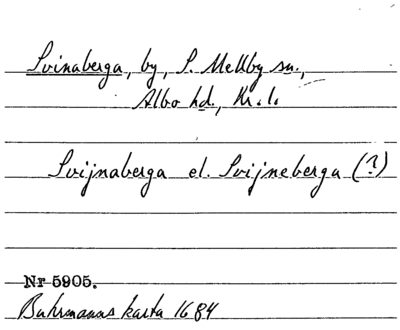 Svinaberga, by, S. Mellby sn.,
Albo hd., Kr. l.
Svijnaberga el. Svijneberga (?)
Nr 5905.
Buhrmanns karta 1684